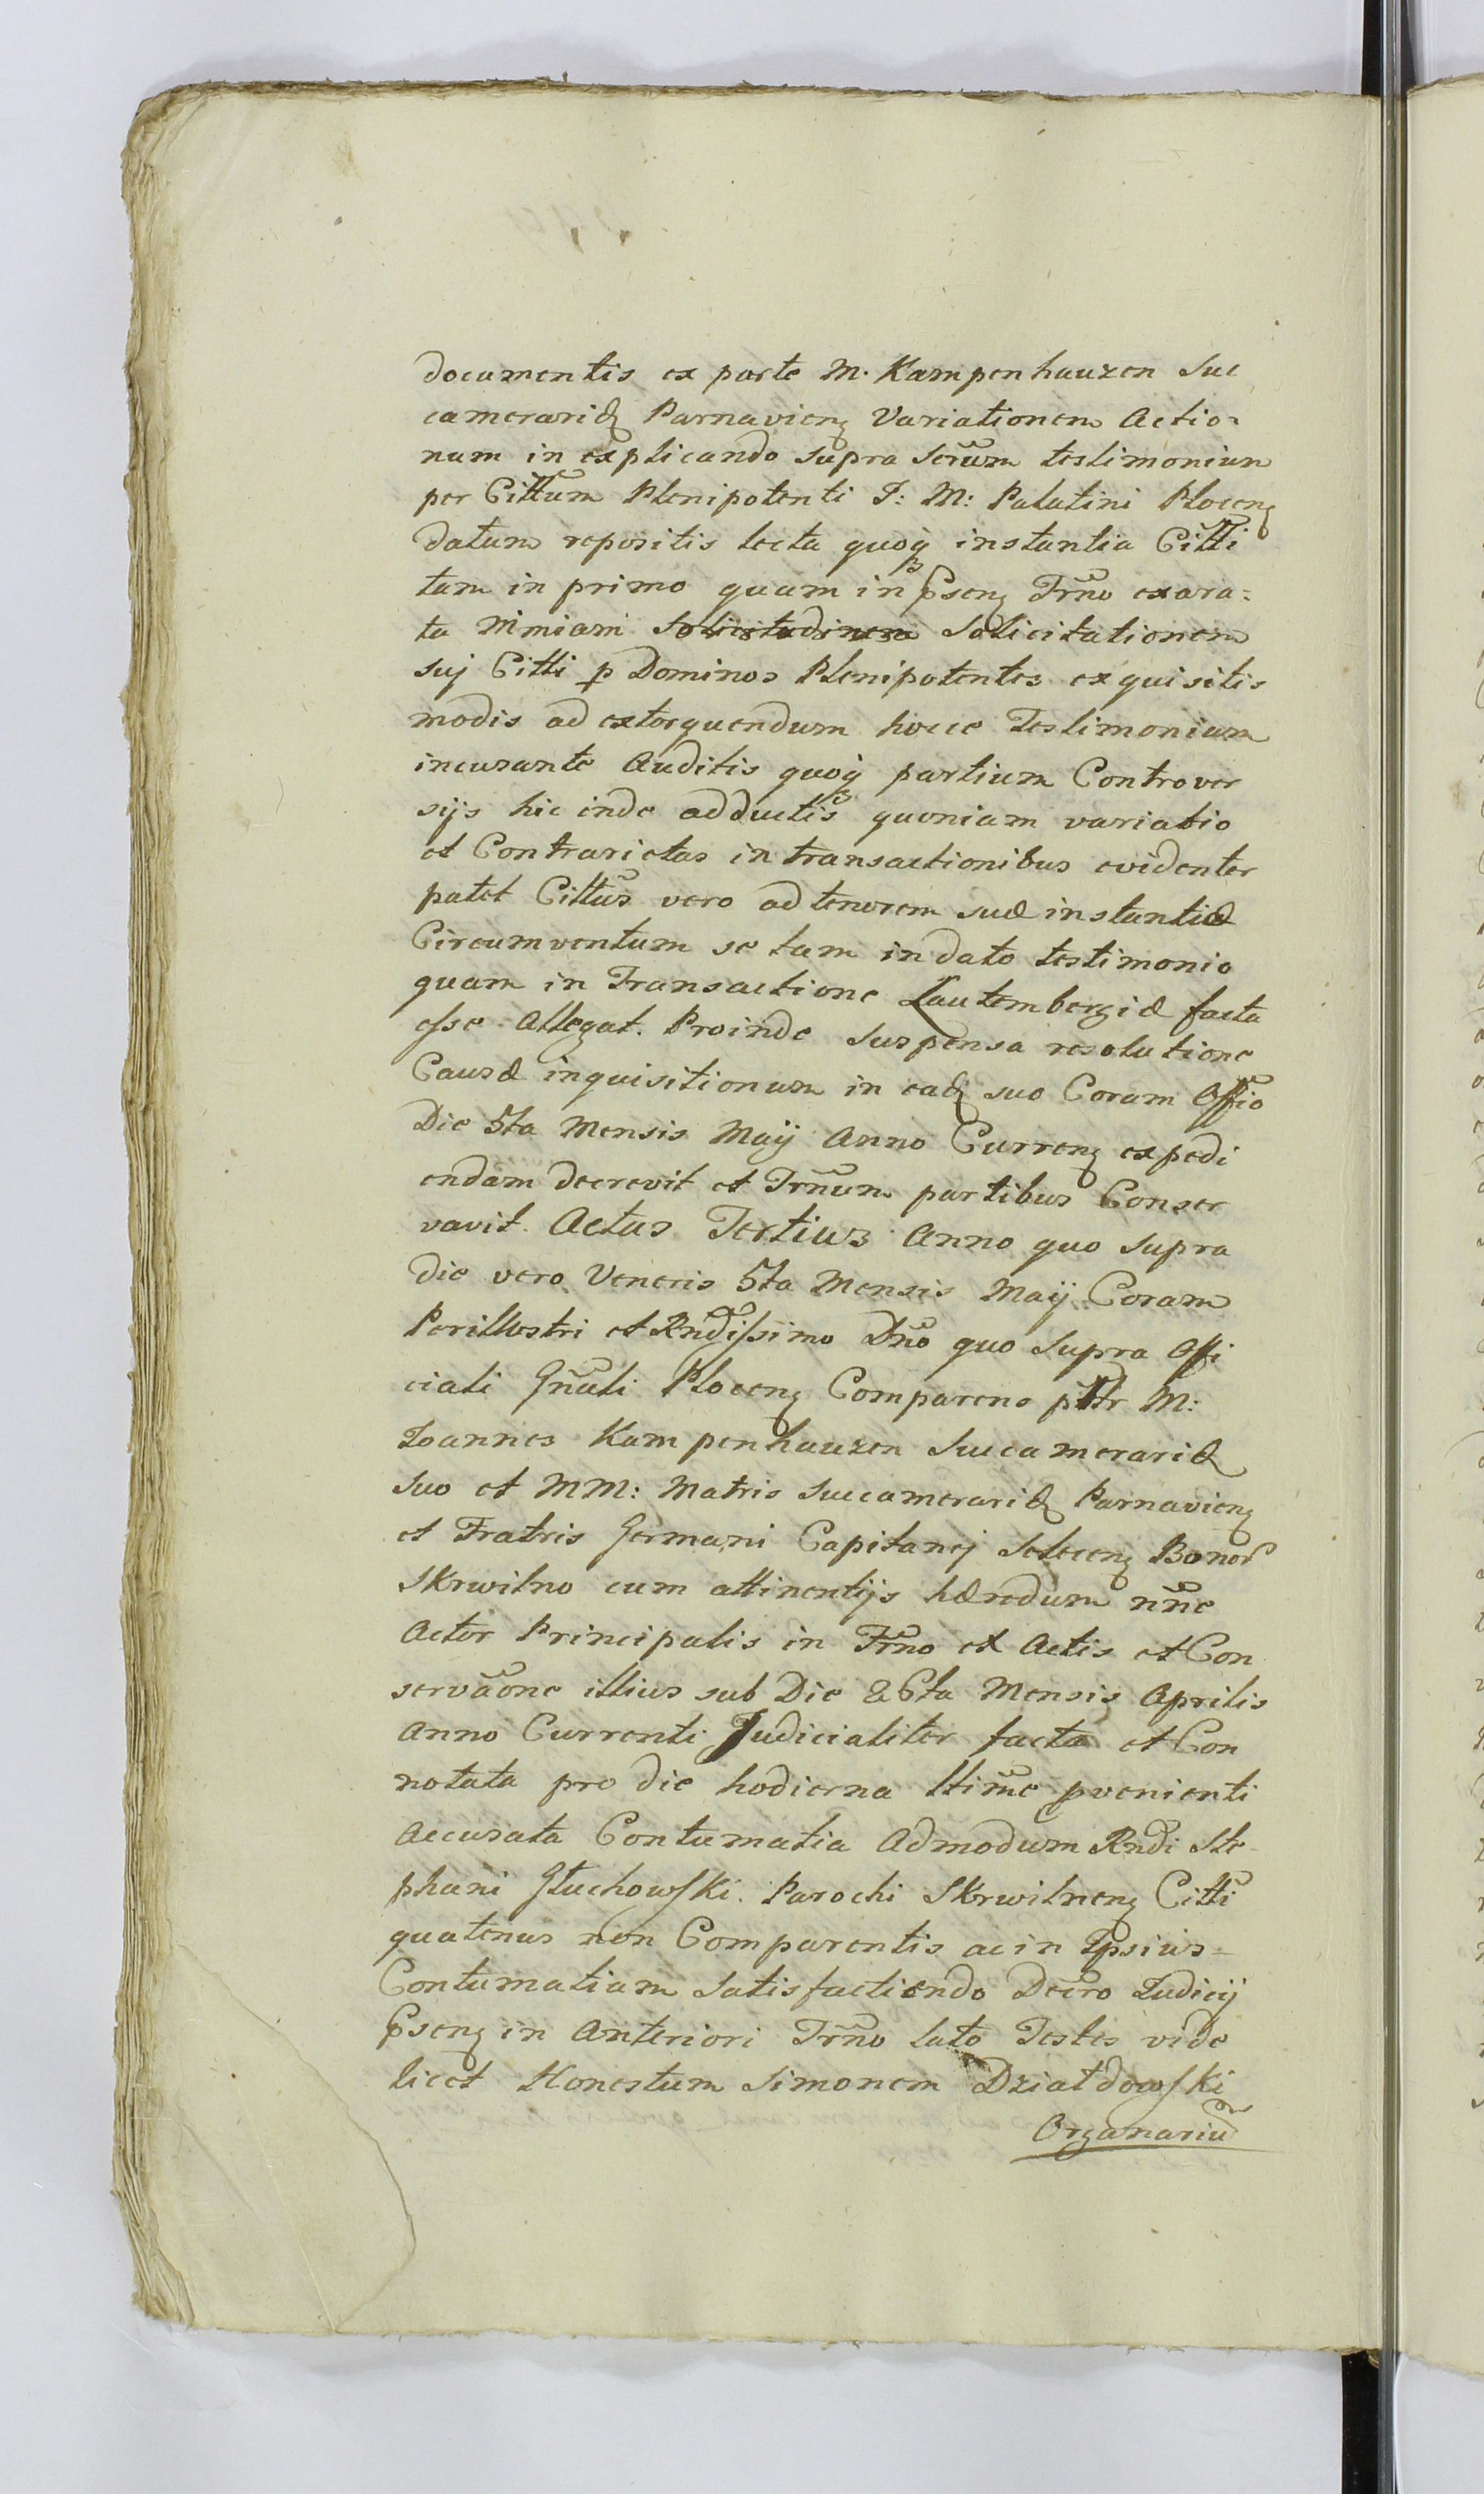 documentis ex parte M. Kampenhauzen Suc
cameraridę Parnavienę Variationem Actio-
num in explicando supra scrũm testimonium
per Cittũm Plenipotenti I: M: Palatini Plocenę
datum repositis lecta quoqꝫ instantia Citti
tam in primo quam in pñsenę Trño exara=
ta Nimiam Solicitudinem Solicitationem
suj Citti p Dominos Plenipotentes exquisitis
modis ad extorquendum hocce Testimonium
incusante Auditis quoqꝫ partium Controver
sijs hic inde adductis quoniam variatio
et Contrarietas in transactionibus evidenter
patet Cittũs vero ad tenorem suæ instantiæ
Circumventum se tam in dato testimonio
quam in Transactione Lautembergiæ facta
esse Allegat. Proinde suspensa resolutione
Causæ inquisitionum in eadę suo Coram Offio
Die 5ta Mensis Maij Anno Currenę expedi
endam decrevit et Trñum partibus Conser
vavit. Actus Tertius Anno quo supra
die vero Veneris 5ta Mensis Maij Coram
Perillustri et Rndissimo Dño quo supra Offi
ciali Gñali Plocenę Comparens pttr M:
Ioannes Kampenhauzen Succameraridę
suo et MM: Matris Succameraridę Parnavienę
et Fratris Germani Capitanej Solecenę Bonor
Skrwilno cum attinentijs hæredum nñe
Actor Principalis in Trño ex Actis et Con
servãone illius sub Die 26ta Mensis Aprilis
Anno Currenti Judicialiter facta et Con
notata pro die hodierna ltime pvenienti
Accusata Contumatia Admodum Rndi Ste
phani Głuchowski Parochi Skrwilnenę Citti
quatenus non Comparentis ac in Ipsius=
Contumatiam Satisfactiendo Decro Iudicij
pñsenę in Anteriori Trño lato Testes vide
licet Honestum Simonem Działdowski
Organariũ